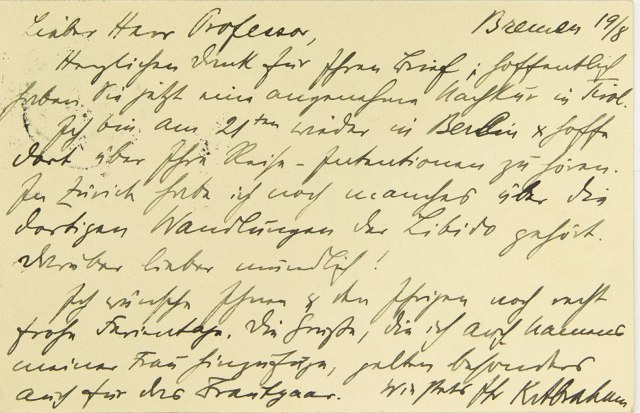 Bremen 19/8
Lieber Herr Professor,
Herzlichen Dank für Ihren Brief; hoffentlich
haben Sie jetzt eine angenehme Nachkur in Tirol.
Ich bin am 21ten wieder in Berlin & hoffe
dort über Ihre Reise-Intentionen zu hören.
In Zürich habe ich noch manches über die
dortigen Wandlungen der Libido gehört.
Darüber lieber mündlich!
Ich wünsche Ihnen & den Ihrigen noch recht
frohe Ferientage. Die Grüße, die ich auch namens
meiner Frau hinzufüge, gelten besonders
auch für das Brautpaar. Wie stets Ihr K. Abraham